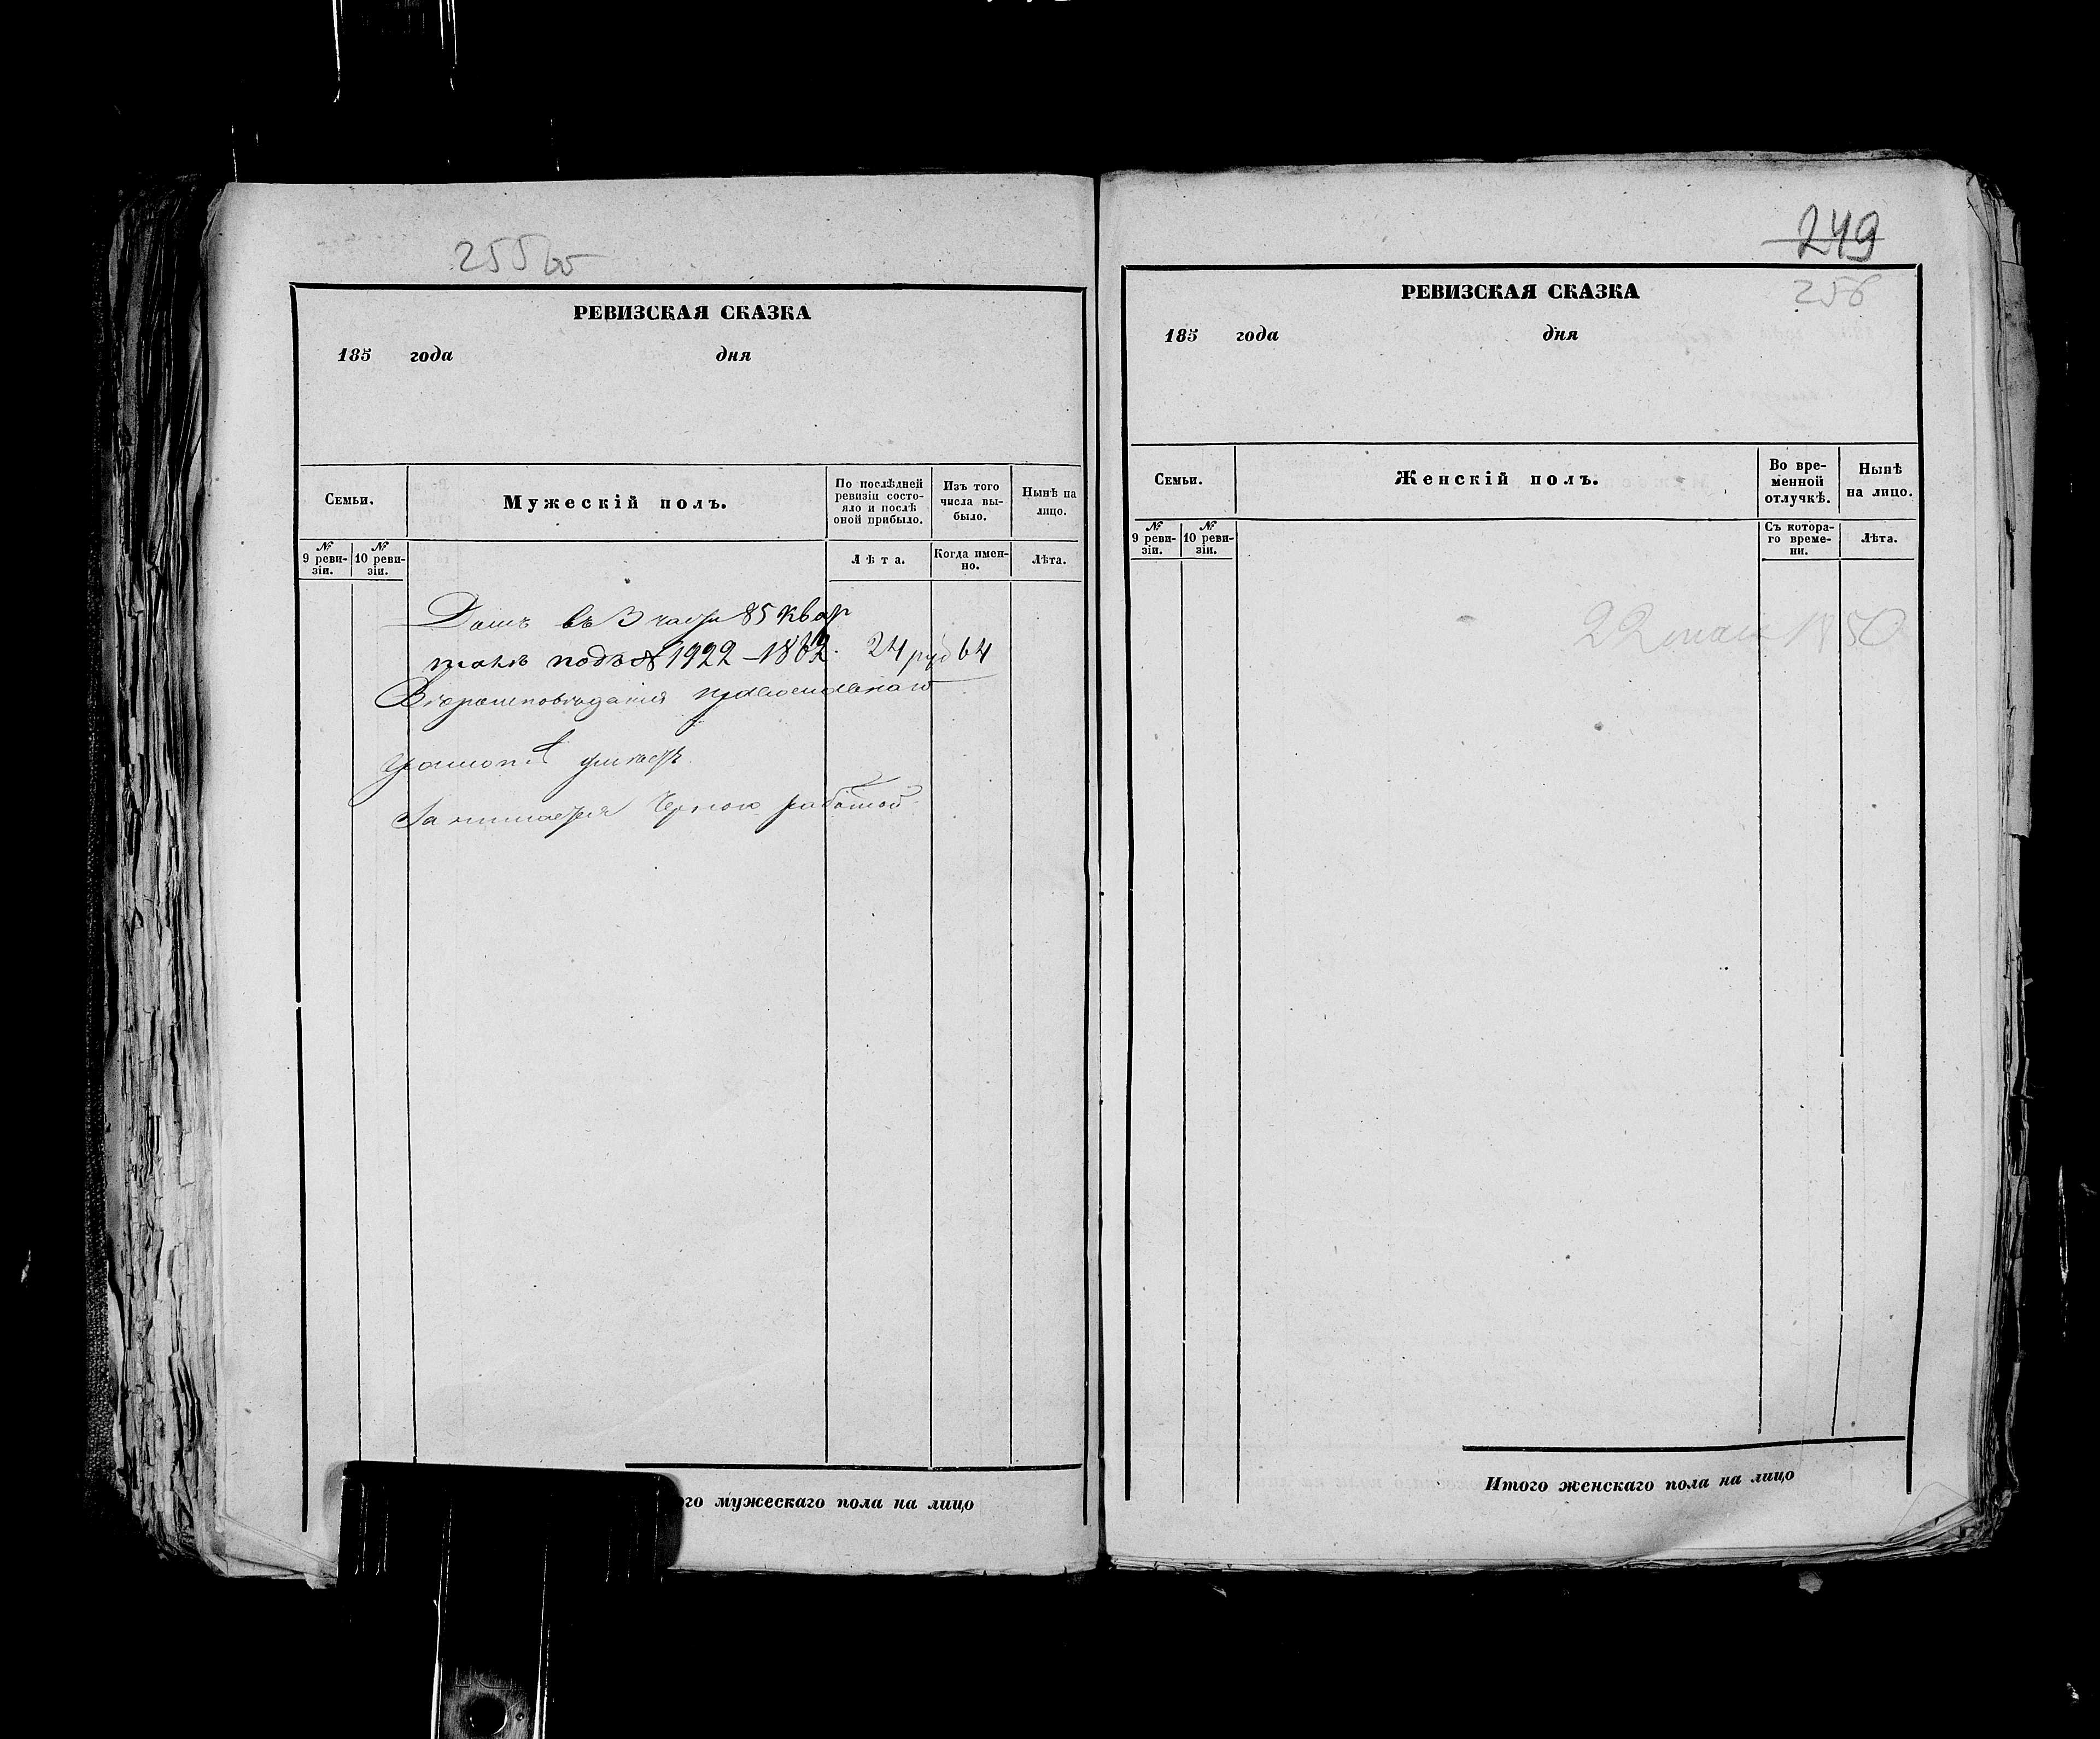 255 об
РЕВИЗСКАЯ СКАЗКА
185 года дня
Семьи.
Мужескій полъ.
По послѣдней ревизіи состо-
яло и послѣ
оной прибыло.
Изъ того
числа вы-
было.
Нынѣ на
лицо.
№
9 реви-
зіи.
№
10 реви-
зіи.
Лѣта.
Когда имен-
но.
Лѣта.
Домъ въ 3 части 85 квар
талѣ подъ № 1922 – 24 руб 64
Вѣроисповѣданія православнаго
грамотѣ умѣетъ
Занимается Черною работой
ого мужескаго пола на лицо
249
256
РЕВИЗСКАЯ СКАЗКА
185 года дня
Семьи.
Женскій полъ.
Во вре-
менной
отлучкѣ.
Нынѣ
на лицо.
№
9 реви-
зіи.
№
10 реви-
зіи.
Съ котора-
го време-
ни.
Лѣта.
22 мая 1850
Итого женскаго пола на лицо